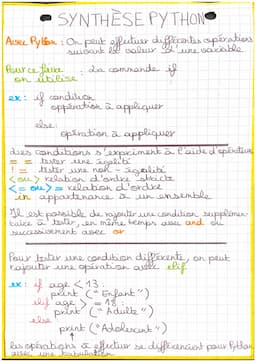 SYNTHÈSE PYTHON
Avec Python : On peut effectuer différentes opérations
suivant la valeur d'une variable
Pour ce faire : La commande if
on utilise
ex : if condition
opération à appliquer
else
opération à appliquer
Les conditions s'expriment à l'aide d'opérateurs
= = tester une égalité
! = tester une non-égalité
< ou > relation d'ordre stricte
<= ou >= relation d'ordre
in appartenance à un ensemble
Il est possible de rajouter une condition supplémen-
taire à tester, en même temps avec and ou
successivement avec or
Pour tester une condition différente, on peut
rajouter une opération avec elif
ex : if age < 13 :
print ("Enfant")
elif age > = 18 :
print ("Adulte")
else
print ("Adolescent")
Les opérations à effectuer se différencient pour Python
avec une tabulation